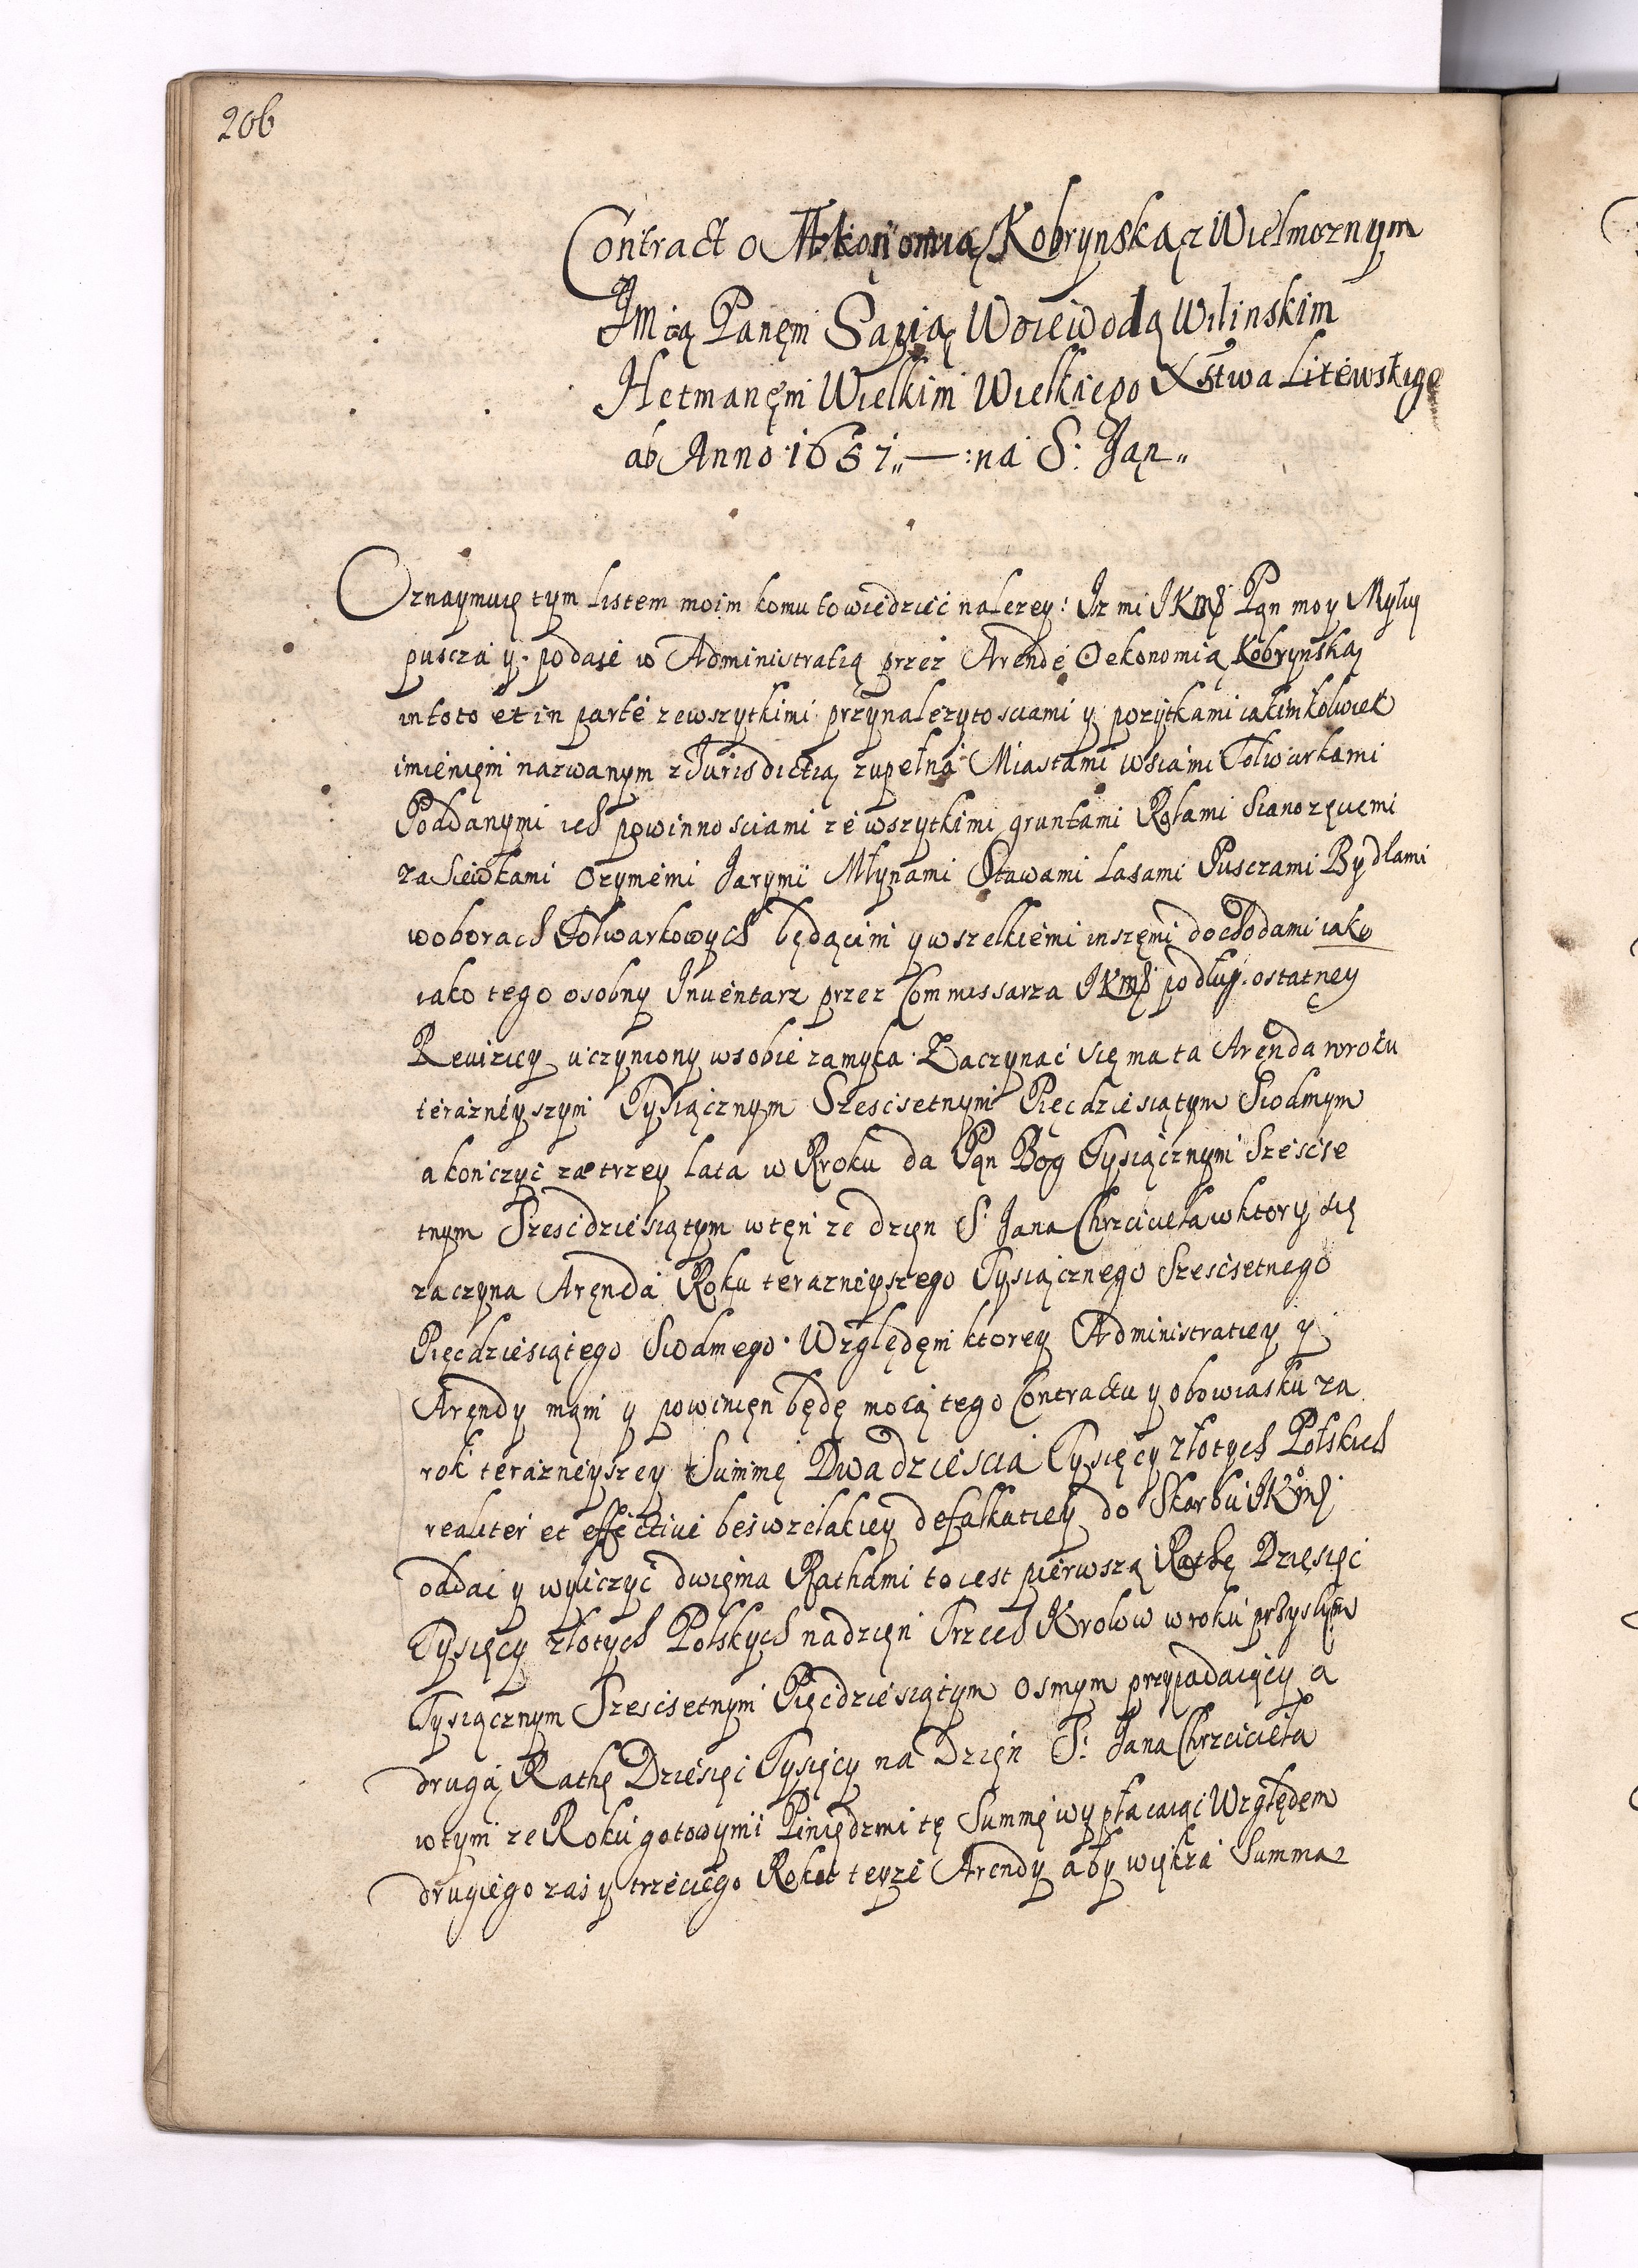 206
Contract o Ækonomią Kobrynską z Wielmoznym
Jmcią Panęm Sapią Woiewodą Wilinskim
Hetmanęm Wielkim Wielkiego Xstwa Litewskigo
ab Anno 1657 „—: na S: Jąn „
Oznaymuię tym listem moim komu to wiedzieć nalezey: Iz mi JKmś Pąn moy Myly
puscza y podaie w Administratią przez Arendę Oekonomią Kobrynską
in toto et in parte zewszytkimi przynalezytosciami y pozytkami iakimkolwiek
imienięm nazwanym z Jurisdictią zupełną Miastami wsiami Folwarkami
Poddanymi ich powinnosciami ze wszytkimi gruntami Rolami Sianozęcemi
zasiewkami Ozymemi Jarymi Młynami Stawami Lasami Pusczami Bydlami
woborach Folwarkowych będącimi y wszelkiemi inszęmi dochodami iako
iako tego osobny Inuentarz przez Commissarza JKmś podług ostatney
Reuizicy uczyniony wsobie zamyka. Zaczynać się ma ta Aręnda wroku
teraznieyszym Tysiącznym Szescsetnym Pięcdziesiątym Siodmym
a kończyć za trzey lata w Rroku da Pąn Bog Tysiącznym Szescse
tnym Szescdziesiątym wtęn ze dzięn S: Jana Chrzciciela wktory się
zaczyna Aręnda Roku teraznieyszego Tysiącznego Szescsetnego
Pięcdziesiątego Siodmego. Względęm ktorey Administratiey y
Aręndy mąm y powinięn będę mocą tego Contractu y obowiasku za
rok teraznieyszey Summę Dwadziescia Tysięcy złotych Polskich
realiter et effectiue beswzelakiey defalkatiey do Skarbu JKmś
oddać y wyliczyć dwięma Rathami to iest pierwszą Rathę Dziesięć
Tysięcy złotych Polskych nadzięń Trzech Krolow wroku przyszłym
Tysiącznym Szescsetnym Pięcdziesiątym osmym przypadaiący a
drugą Rathę Dziesięć Tysięcy na Dzięń S: Jana Chrzciciela
wtym ze Roku gotowymi Piniędzmi tę Summę wypłacaiąc Względem
drugiego zas y trzeciego Roku teyze Arendy aby więksa Summa